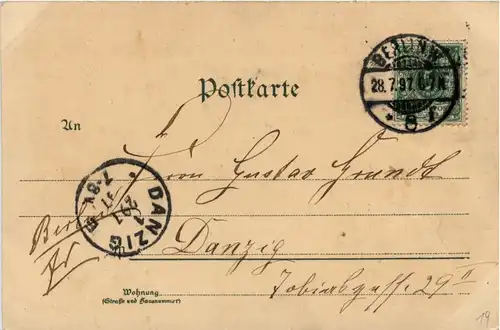 BERLIN W
28.7.97. 6-7 N
* 8 f.
Postkarte
An
Herrn Gustav Grundt
Danzig
Tobiasgasse 29 II
DANZIG
29 7
97
7-8V
Wohnung
(Straße und Hausnummer)
19